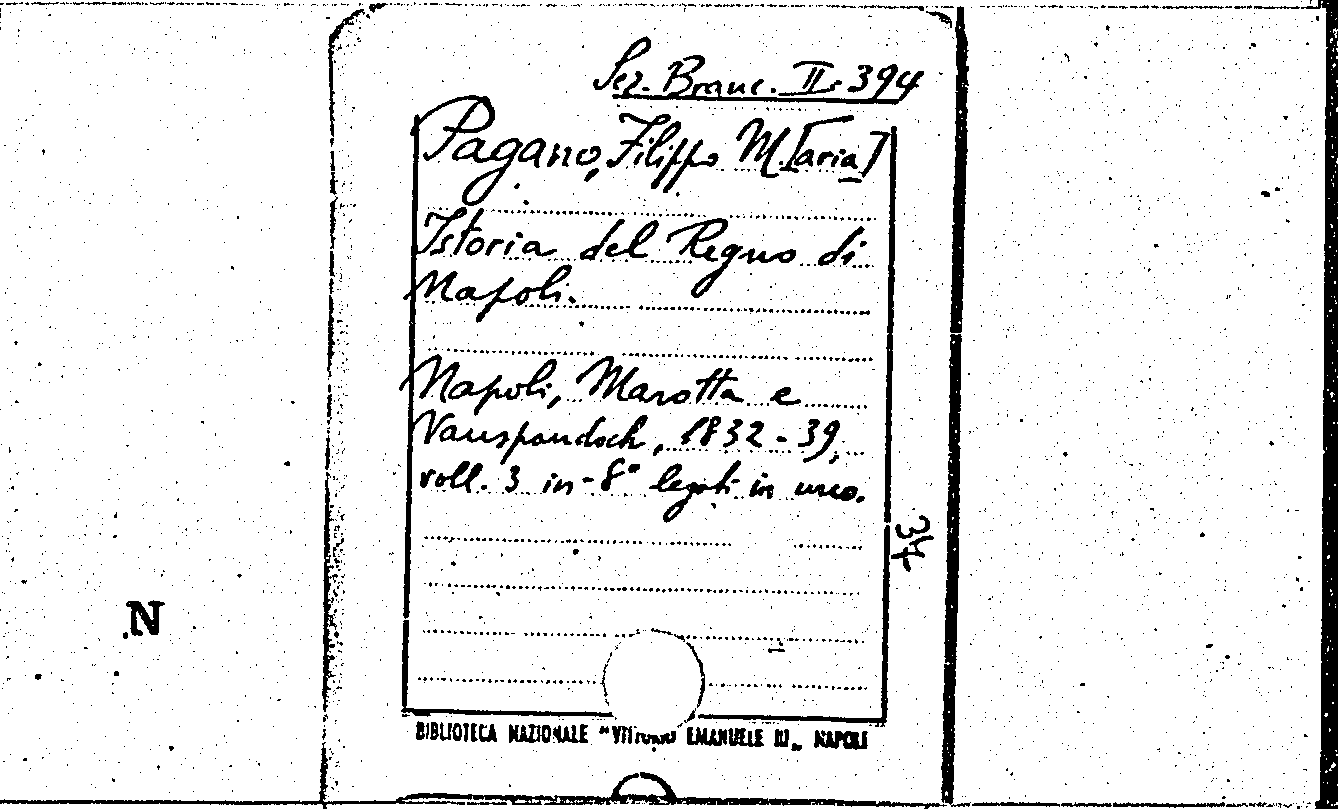 Sez. Branc. II. 394
Pagano, Filippo M.[aria]
Istoria del Regno di
Napoli.
Napoli, Marotta e
Vanspandoch, 1832-39,
voll. 3 in-8° legati in uno.
34
N
BIBLIOTECA NAZIONALE "VITTORIO EMANUELE III„ NAPOLI